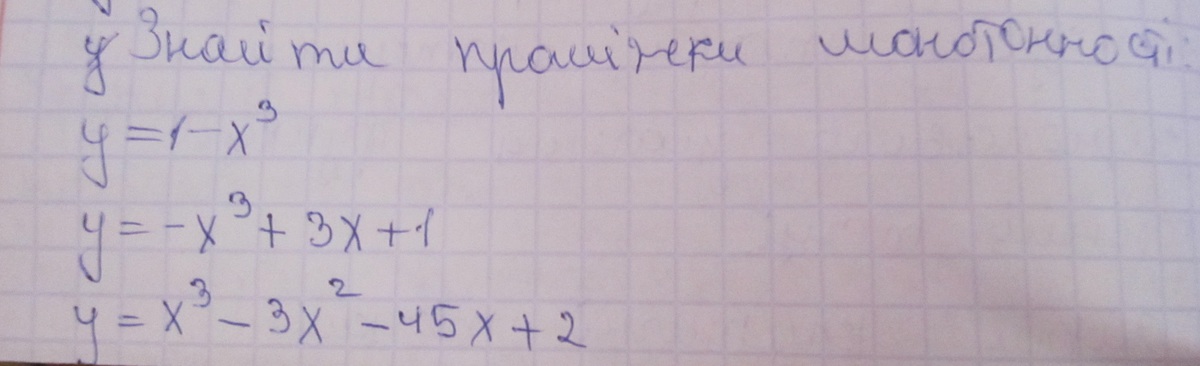 Знайти проміжки монотонності:
y = 1 - x³
y = -x³ + 3x + 1
y = x³ - 3x² - 45x + 2